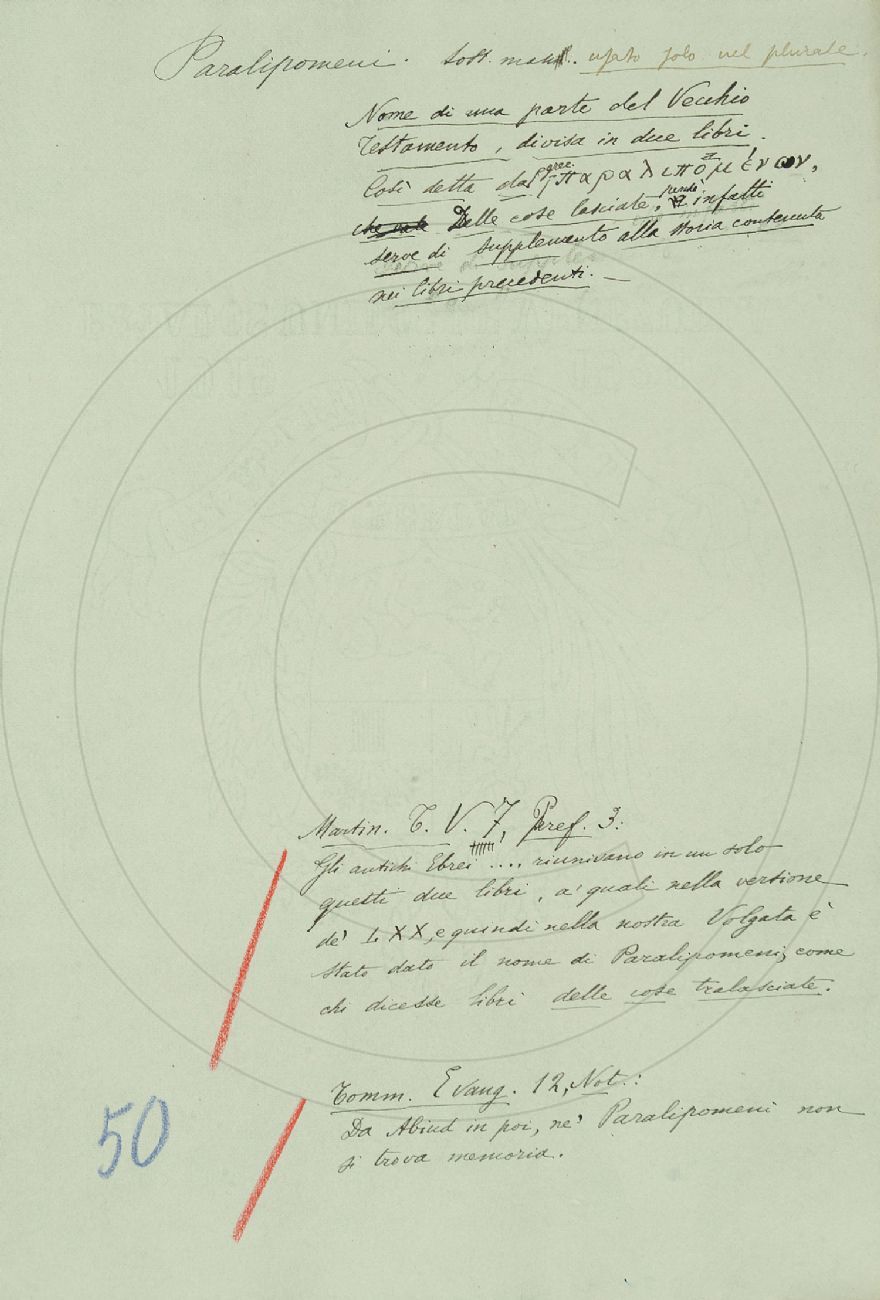 Paralipomeni. Sost. masc. usato solo nel plurale.
Nome di una parte del Vecchio
Testamento, divisa in due libri.
Così detta dal grec. παραλιπομένων,
che vale Delle cose lasciate, infatti
serve di supplemento alla storia contenuta
nei libri precedenti. —
Martin. T. V. 7, Pref. 3:
Gli antichi Ebrei .... riunivano in un solo
questi due libri, a' quali nella versione
de' LXX, e quindi nella nostra Volgata è
stato dato il nome di Paralipomeni, come
chi dicesse libri delle cose tralasciate.
Tomm. Evang. 12, Not.:
Da Abiud in poi, ne' Paralipomeni non
si trova memoria.
50